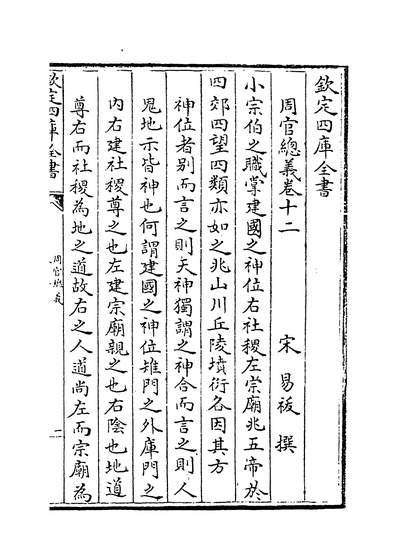 欽定四庫全書
周官總義卷十二
宋 易祓 撰
小宗伯之職掌建國之神位右社稷左宗廟兆五帝於
四郊四望四類亦如之兆山川丘陵墳衍各因其方
神位者别而言之則天神獨謂之神合而言之則人
鬼地示皆神也何謂建國之神位雉門之外庫門之
内右建社稷尊之也左建宗廟親之也右陰也地道
尊右而社稷為地之道故右之人道尚左而宗廟為
欽定四庫全書
周官總義
一